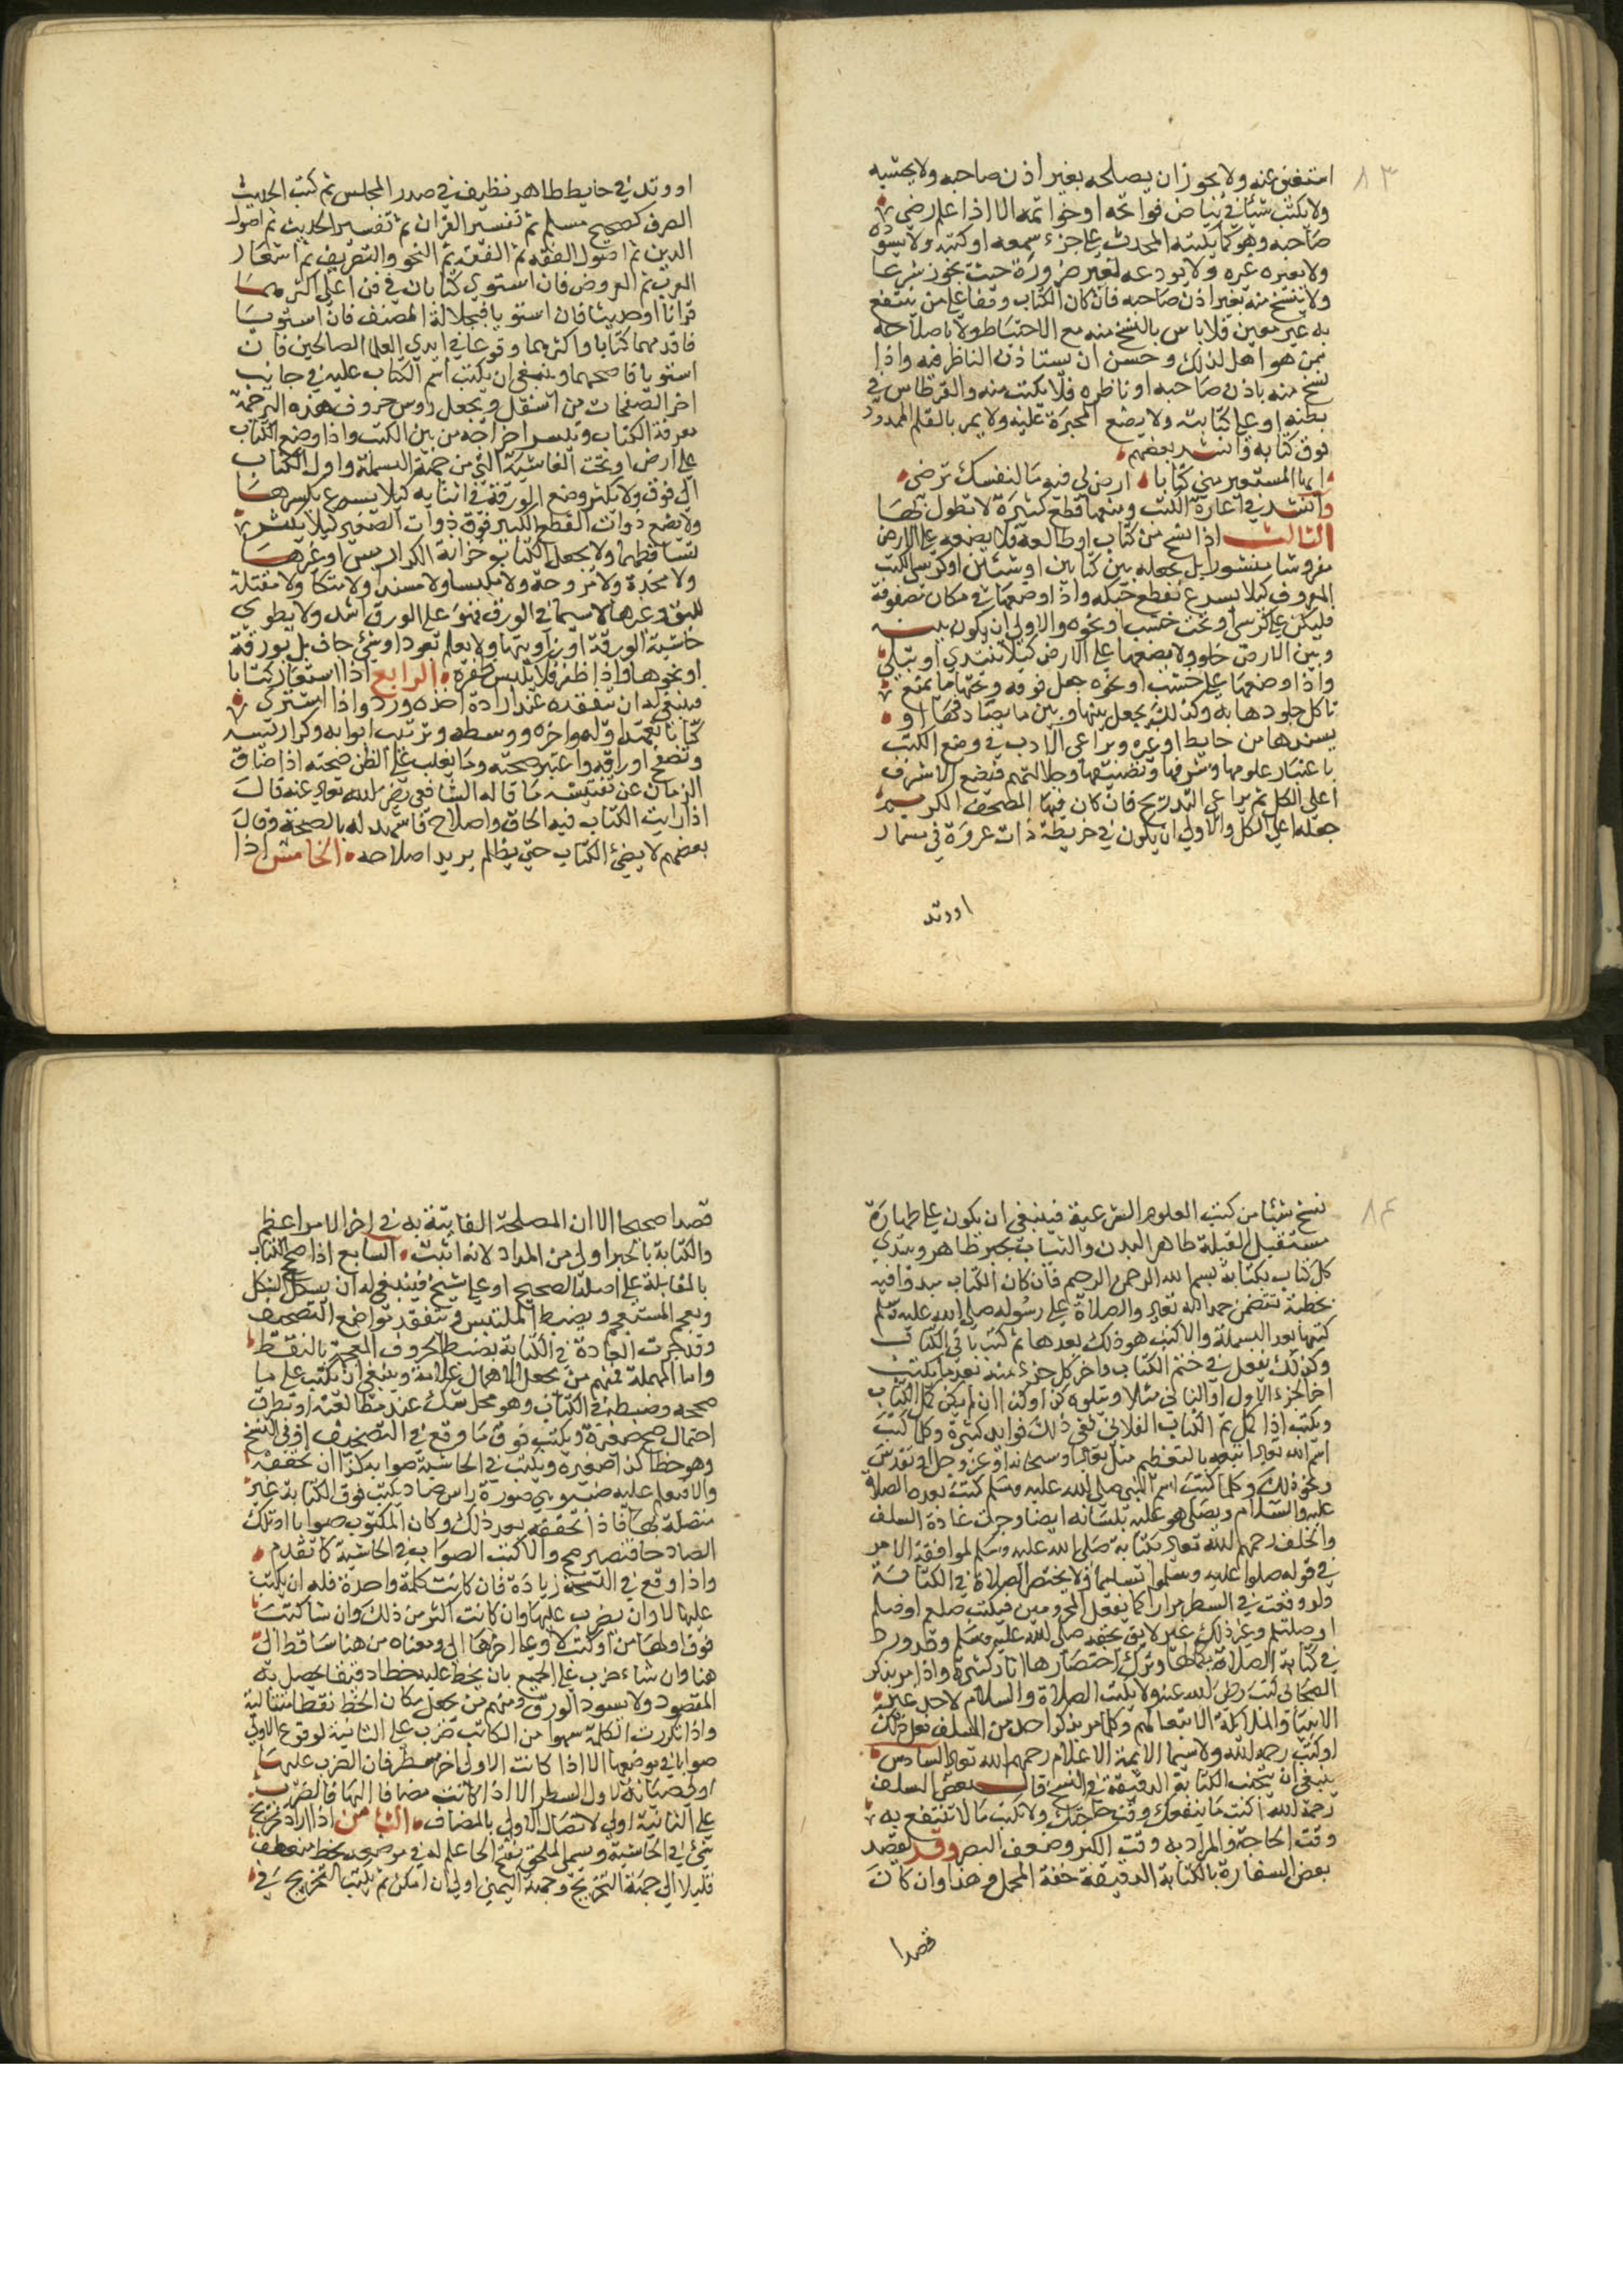 ٨٣
استغنى عنه ولا يجوز ان يصلحه بغير اذن صاحبه ولا يحشيه
ولا يكتب شيئا في بياض فواتحه او خواتمه الا اذا علم رضى
صاحبه وهو كما يكتبه المحدث على جزء سمعه او كتبه ولا يسوده
ولا يعيره غيره ولا يودعه لغير ضرورة حيث يجوز شرعا
ولا ينسخ منه بغير اذن صاحبه فان كان الكتاب وقفا على من ينتفع
به غير معين فلا باس بالنسخ منه مع الاحتياط ولا باصلاحه
ممن هو اهل لذلك وحسن ان يستاذن الناظر فيه واذا
نسخ منه باذن صاحبه او ناظره فلا يكتب منه والقرطاس في
بطنه او على كتابته ولا يضع المحبرة عليه ولا يمر بالقلم الممدود
فوق كتابه وانشد بعضهم
ايها المستعير مني كتابا ارض لي فيه ما لنفسك ترضى
وانشد في اعارة الكتب ومنعها قطع كثيرة لا تطول بها
الثالث اذا نسخ من كتاب او طالعه فلا يضعه على الارض
مفروشا منشورا بل يجعله بين كتابين او شيئين او كرسي الكتب
المعروف كيلا يسرع تقطع حبكه واذا وضعها في مكان مصفوفة
فليكن على كرسي او تحت خشب او نحوه والاولى ان يكون بينه
وبين الارض خلو ولا يضعها على الارض كيلا تتندي او تبلى
واذا وضعها على خشب او نحوه جعل فوقه وتحتها ما يمنع
تاكل جلودها به وكذلك يجعل بينها وبين ما يصادفها او
يسندها من حايط او غيره ويراعي الادب في وضع الكتب
باعتبار علومها وشرفها ومصنفيها وجلالتهم فيضع الاشرف
اعلى الكل ثم يراعي التدريج فان كان فيها المصحف الكريم
جعله اعلى الكل والاولى ان يكون في خريطة ذات عروة في مسمار
او وتد
او وتد في حايط طاهر نظيف في صدر المجلس ثم كتب الحديث
الصرف كصحيح مسلم ثم تفسير القران ثم تفسير الحديث ثم اصول
الدين ثم اصول الفقه ثم الفقه ثم النحو والتصريف ثم اشعار
العرب ثم العروض فان استوى كتابان في فن اعلى اكثرهما
قرانا او حديثا فان استويا فبجلالة المصنف فان استويا
فاقدمهما كتابا واكثرهما وقوعا في ايدي العلما الصالحين فان
استويا فاصحهما وينبغي ان يكتب اسم الكتاب عليه في جانب
اخر الصفحات من اسفل ويجعل روس حروف هذه الترجمة
معرفة الكتاب وتيسر اخراجه من بين الكتب واذا وضع الكتاب
على ارض او تحت الغاشية التي من جهة البسملة واول الكتاب
الى فوق ولا يكثر وضع الورقة في اثنايه كيلا يسرع تكسرها
ولا يضع ذوات القطع الكبير فوق ذوات الصغير كيلا يكثر
تساقطها ولا يجعل الكتاب خزانة الكراريس او غيرها
ولا مخدة ولا مروحة ولا مكبسا ولا مسندا ولا متكا ولا مقتلة
للبق وغيرها لا سيما في الورق فهو على الورق اشد ولا يطوي
حاشية الورقة او زاويتها ولا يعلم بعود او شئ جاف بل بورقة
او نحوها واذا ظفر فلا يكبس ظفره الرابع اذا استعار كتابا
فينبغي له ان يتفقده عند ارادة اخذه ورده واذا اشترى
كتابا تعهد اوله واخره ووسطه وترتيب ابوابه وكراريسه
وتصفح اوراقه واعتبر صحته وما يغلب على الظن صحته اذا ضاق
الزمان عن تفتيشه ما قاله الشافعي رضى الله تعالى عنه قال
اذا رايت الكتاب فيه الحاق واصلاح فاشهد له بالصحة وقال
بعضهم لا يضئ الكتاب حتى يظلم يريد اصلاحه الخامس اذا
٨٤
نسخ شيئا من كتب العلوم الشرعية فينبغي ان يكون على طهارة
مستقبل القبلة طاهر البدن والثياب بحبر طاهر ويبتدي
كل كتاب بكتابة بسم الله الرحمن الرحيم فان كان الكتاب مبدوا فيه
بخطبة تتضمن حمد الله تعالى والصلاة على رسوله صلى الله عليه وسلم
كتبها بعد البسملة والا كتب هو ذلك بعدها ثم كتب باقي الكتاب
وكذلك يفعل في ختم الكتاب واخر كل جزء منه بعد ما يكتب
اخر الجزء الاول او الثاني مثلا ويتلوه كذا وكذا ان لم يكن كمل الكتاب
ويكتب اذا كمل تم الكتاب الفلاني ففي ذلك فوايد كثيرة وكلما كتب
اسم الله تعالى اتبعه بالتعظيم مثل تعالى او سبحانه او عز وجل او تقدس
ونحو ذلك وكلما كتب اسم النبي صلى الله عليه وسلم كتب بعده الصلاة
عليه والسلام ويصلي هو عليه بلسانه ايضا وجرت عادة السلف
والخلف رحمهم الله تعالى بكتابة صلى الله عليه وسلم لموافقة الامر
في قوله صلوا عليه وسلموا تسليما ولا يختصر الصلاة في الكتابة
ولو وقعت في السطر مرارا كما يفعل المحرومين فيكتب صلع او صلم
او صلعم وغير ذلك غير لايق بحقه صلى الله عليه وسلم وقد ورد
في كتابة الصلاة بكمالها وترك اختصارها اثار كثيرة واذا مر بذكر
الصحابي كتب رضى الله عنه ولا يكتب الصلاة والسلام لاحد غير
الانبيا والملايكة الا تبعا لهم وكلما مر بذكر احد من السلف فعل ذلك
او كتب رحمه الله ولا سيما الايمة الاعلام رحمهم الله تعالى السادس
ينبغي ان يجتنب الكتابة الدقيقة في النسخ قال بعض السلف
رحمه الله اكتب ما ينفعك وقت حاجتك ولا تكتب ما لا تنتفع به
وقت الحاجة والمراد به وقت الكبر وضعف البصر وقد يقصد
بعض السفارة بالكتابة الدقيقة خفة المحمل وهذا وان كان
قصدا
قصدا صحيحا الا ان المصلحة الفايتة به في اخر الامر اعظم
والكتابة بالحبر اولى من المداد لانه اثبت السابع اذا صحح الكتاب
بالمقابلة على اصله الصحيح او على شيخ فينبغي له ان يشكل المشكل
ويعجم المستعجم ويضبط الملتبس ويتفقد مواضع التصحيف
وقد جرت العادة في الكتابة بضبط الحروف المعجمة بالنقط
واما المهملة فمنهم من يجعل للاهمال علامة وينبغي ان يكتب على ما
صححه وضبطه في الكتاب وهو محل شك عند مطالعته او تطرق
احتمال صح صغيرة ويكتب فوق ما وقع في التصنيف او في النسخ
وهو خطا كذا صغيره ويكتب في الحاشية صوابه كذا ان تحققه
والا فيعلم عليه ضبه وهي صورة راس صاد يكتب فوق الكتابة غير
متصلة بها فاذا تحققه بعد ذلك وكان المكتوب صوابا زاد تلك
الصاد حا فتصير صح والا كتب الصواب في الحاشية كما تقدم
واذا وقع في النسخة زيادة فان كانت كلمة واحدة فله ان يكتب
عليها لا وان يضرب عليها وان كانت اكثر من ذلك وان شا كتب
فوق اولها من او كتب لا وعلى اخرها الى ومعناه من هنا ساقط الى
هنا وان شاء ضرب على الجميع بان يخط عليه خطا دقيقا يحصل به
المقصود ولا يسود الورق ومنهم من يجعل مكان الخط نقطا متتالية
واذا تكررت الكلمة سهوا من الكاتب ضرب على الثانية لوقوع الاولى
صوابا في موضعها الا اذا كانت الاولى اخر سطر فان الضرب عليها
اولى صيانة لاول السطر الا اذا كانت مضافا اليها فالضرب
على الثانية اولى لاتصال الاولى بالمضاف الثامن اذا اراد تخريج
شئ في الحاشية ويسمى الملحق بفتح الحا علم له في موضعه بخط منعطف
قليلا الى جهة التخريج وجهة اليمين اولى ان امكن ثم يكتب التخريج في